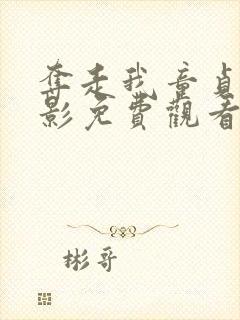 奪走我童貞
影免費觀看
彬哥